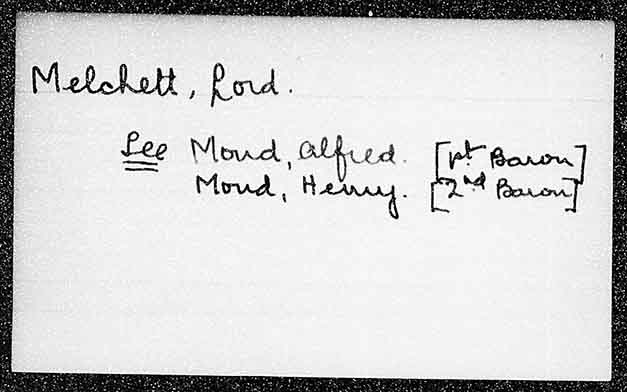 Melchett, Lord.
See Mond, Alfred. [1st Baron]
Mond, Henry. [2nd Baron]